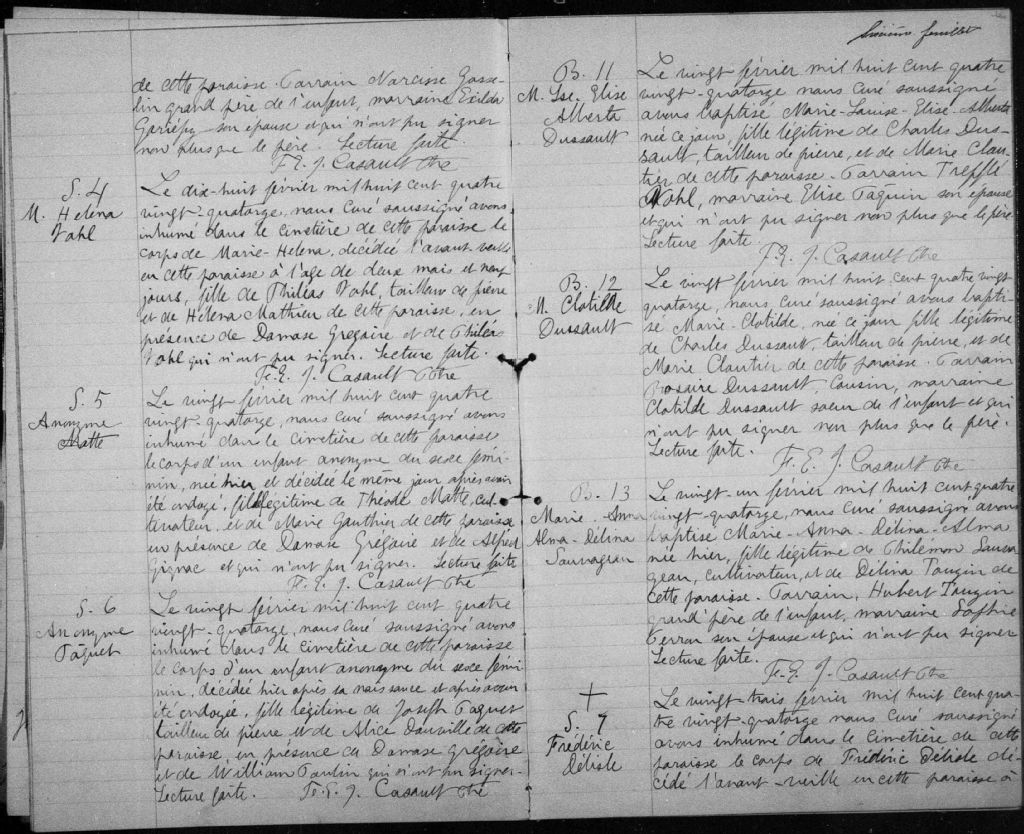 de cette paroisse. Parrain Narcisse Gosse-
lin grand père de l'enfant, marraine Exilda
Gariépy son épouse et qui n'ont pu signer
non plus que le père. Lecture faite.
F. E. J. Casault Ptre
S. 4
M. Helena
Vohl
Le dix-huit février mil huit cent quatre
vingt-quatorze, nous Curé soussigné avons
inhumé dans le cimetière de cette paroisse le
corps de Marie-Helena, décédée l'avant veille
en cette paroisse à l'age de deux mois et neuf
jours, fille de Philéas Vohl, tailleur de pierre
et de Héléna Mathieu de cette paroisse, en
présence de Damase Gregoire et de Philéas
Vohl qui n'ont pu signer. Lecture faite.
F. E. J. Casault Ptre
S. 5
Anonyme
Matte
Le vingt février mil huit cent quatre
vingt-quatorze, nous curé soussigné avons
inhumé dans le cimetière de cette paroisse
le corps d'un enfant anonyme du sexe fémi-
nin, née hier et décédée le même jour après avoir
été ondoyé, fille légitime de Théode Matte, cul-
tivateur, et de Marie Gauthier de cette paroisse
en présence de Damase Grégoire et de Alfred
Gignac et qui n'ont pu signer. Lecture faite
F. E. J. Casault Ptre
S. 6
Anonyme
Pâquet
Le vingt février mil huit cent quatre
vingt-quatorze, nous Curé soussigné avons
inhumé dans le cimetière de cette paroisse
le corps d'un enfant anonyme du sexe fémi-
nin, décédée hier après sa naissance et après avoir
été ondoyée, fille légitime de Joseph Paquet
tailleur de pierre et de Alice Dauville de cette
paroisse, en présence de Damase grégoire
et de William Paulin qui n'ont pu signer-
Lecture faite. F. E. J. Casault Ptre
feuillet
B. 11
M. Lse. Elise
Alberta
Dussault
Le vingt février mil huit cent quatre
vingt-quatorze nous Curé soussigné
avons baptisé Marie-Louise-Elise-Alberta
née ce jour, fille légitime de Charles Dus-
sault, tailleur de pierre, et de Marie Clou-
tier de cette paroisse. Parrain Trefflé
Vohl, marraine Elise Paquin son épouse
et qui n'ont pu signer non plus que le père.
Lecture faite.
F. E. J. Casault Ptre
B. 12
M. Clotilde
Dussault
Le vingt février mil huit cent quatre vingt
quatorze, nous Curé soussigné avons bapti-
sé Marie-Clotilde, née ce jour fille légitime
de Charles Dussault, tailleur de pierre, et de
Marie Cloutier de cette paroisse. Parrain
Rosaire Dussault, Cousin, marraine
Clotilde Dussault soeur de l'enfant et qui
n'ont pu signer non plus que le père.
Lecture faite.
F. E. J. Casault Ptre
B. 13
Marie-Anna
Alma-Délina
Sauvageau
Le vingt-un février mil huit cent quatre
vingt-quatorze, nous Curé soussigné avons
baptisé Marie-Anna-Délina-Alma
née hier, fille légitime de Philémon Sauva
geau, cultivateur, et de Délina Tougin de
cette paroisse. Parrain, Hubert Tougin
grand père de l'enfant, marraine Sophie
Perron son épouse et qui n'ont pu signer
Lecture faite.
F. E. J. Casault Ptre
S. 7
Frédéric
Délisle
Le vingt trois février mil huit cent qua-
tre vingt-quatorze nous Curé soussigné
avons inhumé dans le cimetière de cette
paroisse le corps de Frédéric Délisle dé-
cédé l'avant-veille en cette paroisse à